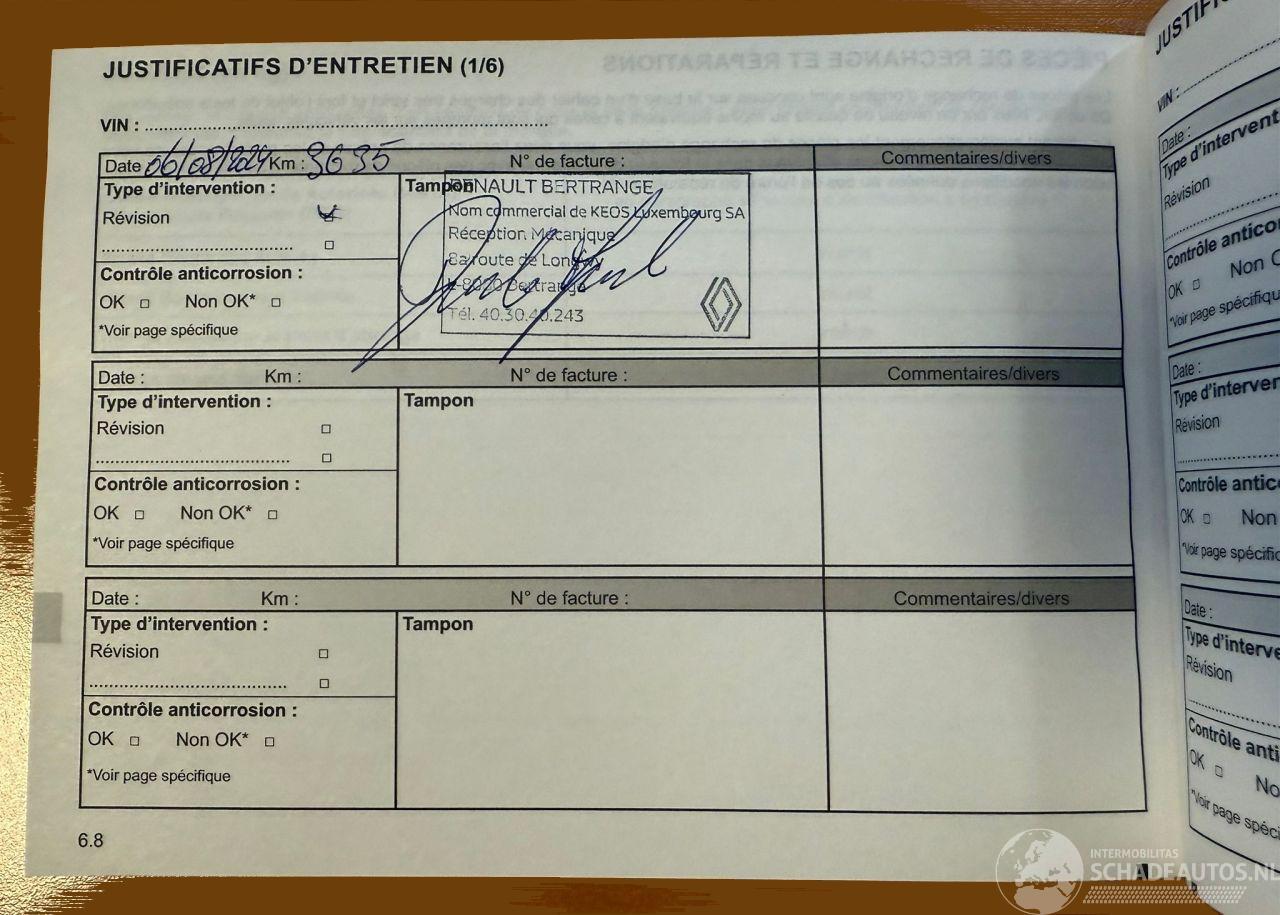 JUSTIFICATIFS D'ENTRETIEN (1/6)
VIN :
Date 06/08/2024 Km : 3635 N° de facture : Commentaires/divers
Type d'intervention : Tampon
Révision
Contrôle anticorrosion :
OK Non OK*
*Voir page spécifique
RENAULT BERTRANGE
Nom commercial de KEOS Luxembourg SA
Réception Mécanique
route de Longwy
L-8020 Bertrange
Tél. 40.30.40.243
Date : Km : N° de facture : Commentaires/divers
Type d'intervention : Tampon
Révision
Contrôle anticorrosion :
OK Non OK*
*Voir page spécifique
Date : Km : N° de facture : Commentaires/divers
Type d'intervention : Tampon
Révision
Contrôle anticorrosion :
OK Non OK*
*Voir page spécifique
6.8
VIN :
Date :
Type d'intervent
Révision
Contrôle antico
OK Non O
*Voir page spécifiqu
Date :
Type d'interven
Révision
Contrôle antic
OK Non
*Voir page spécifi
Date :
Type d'interve
Révision
Contrôle anti
OK No
*Voir page spéci
INTERMOBILITAS
SCHADEAUTOS.NL